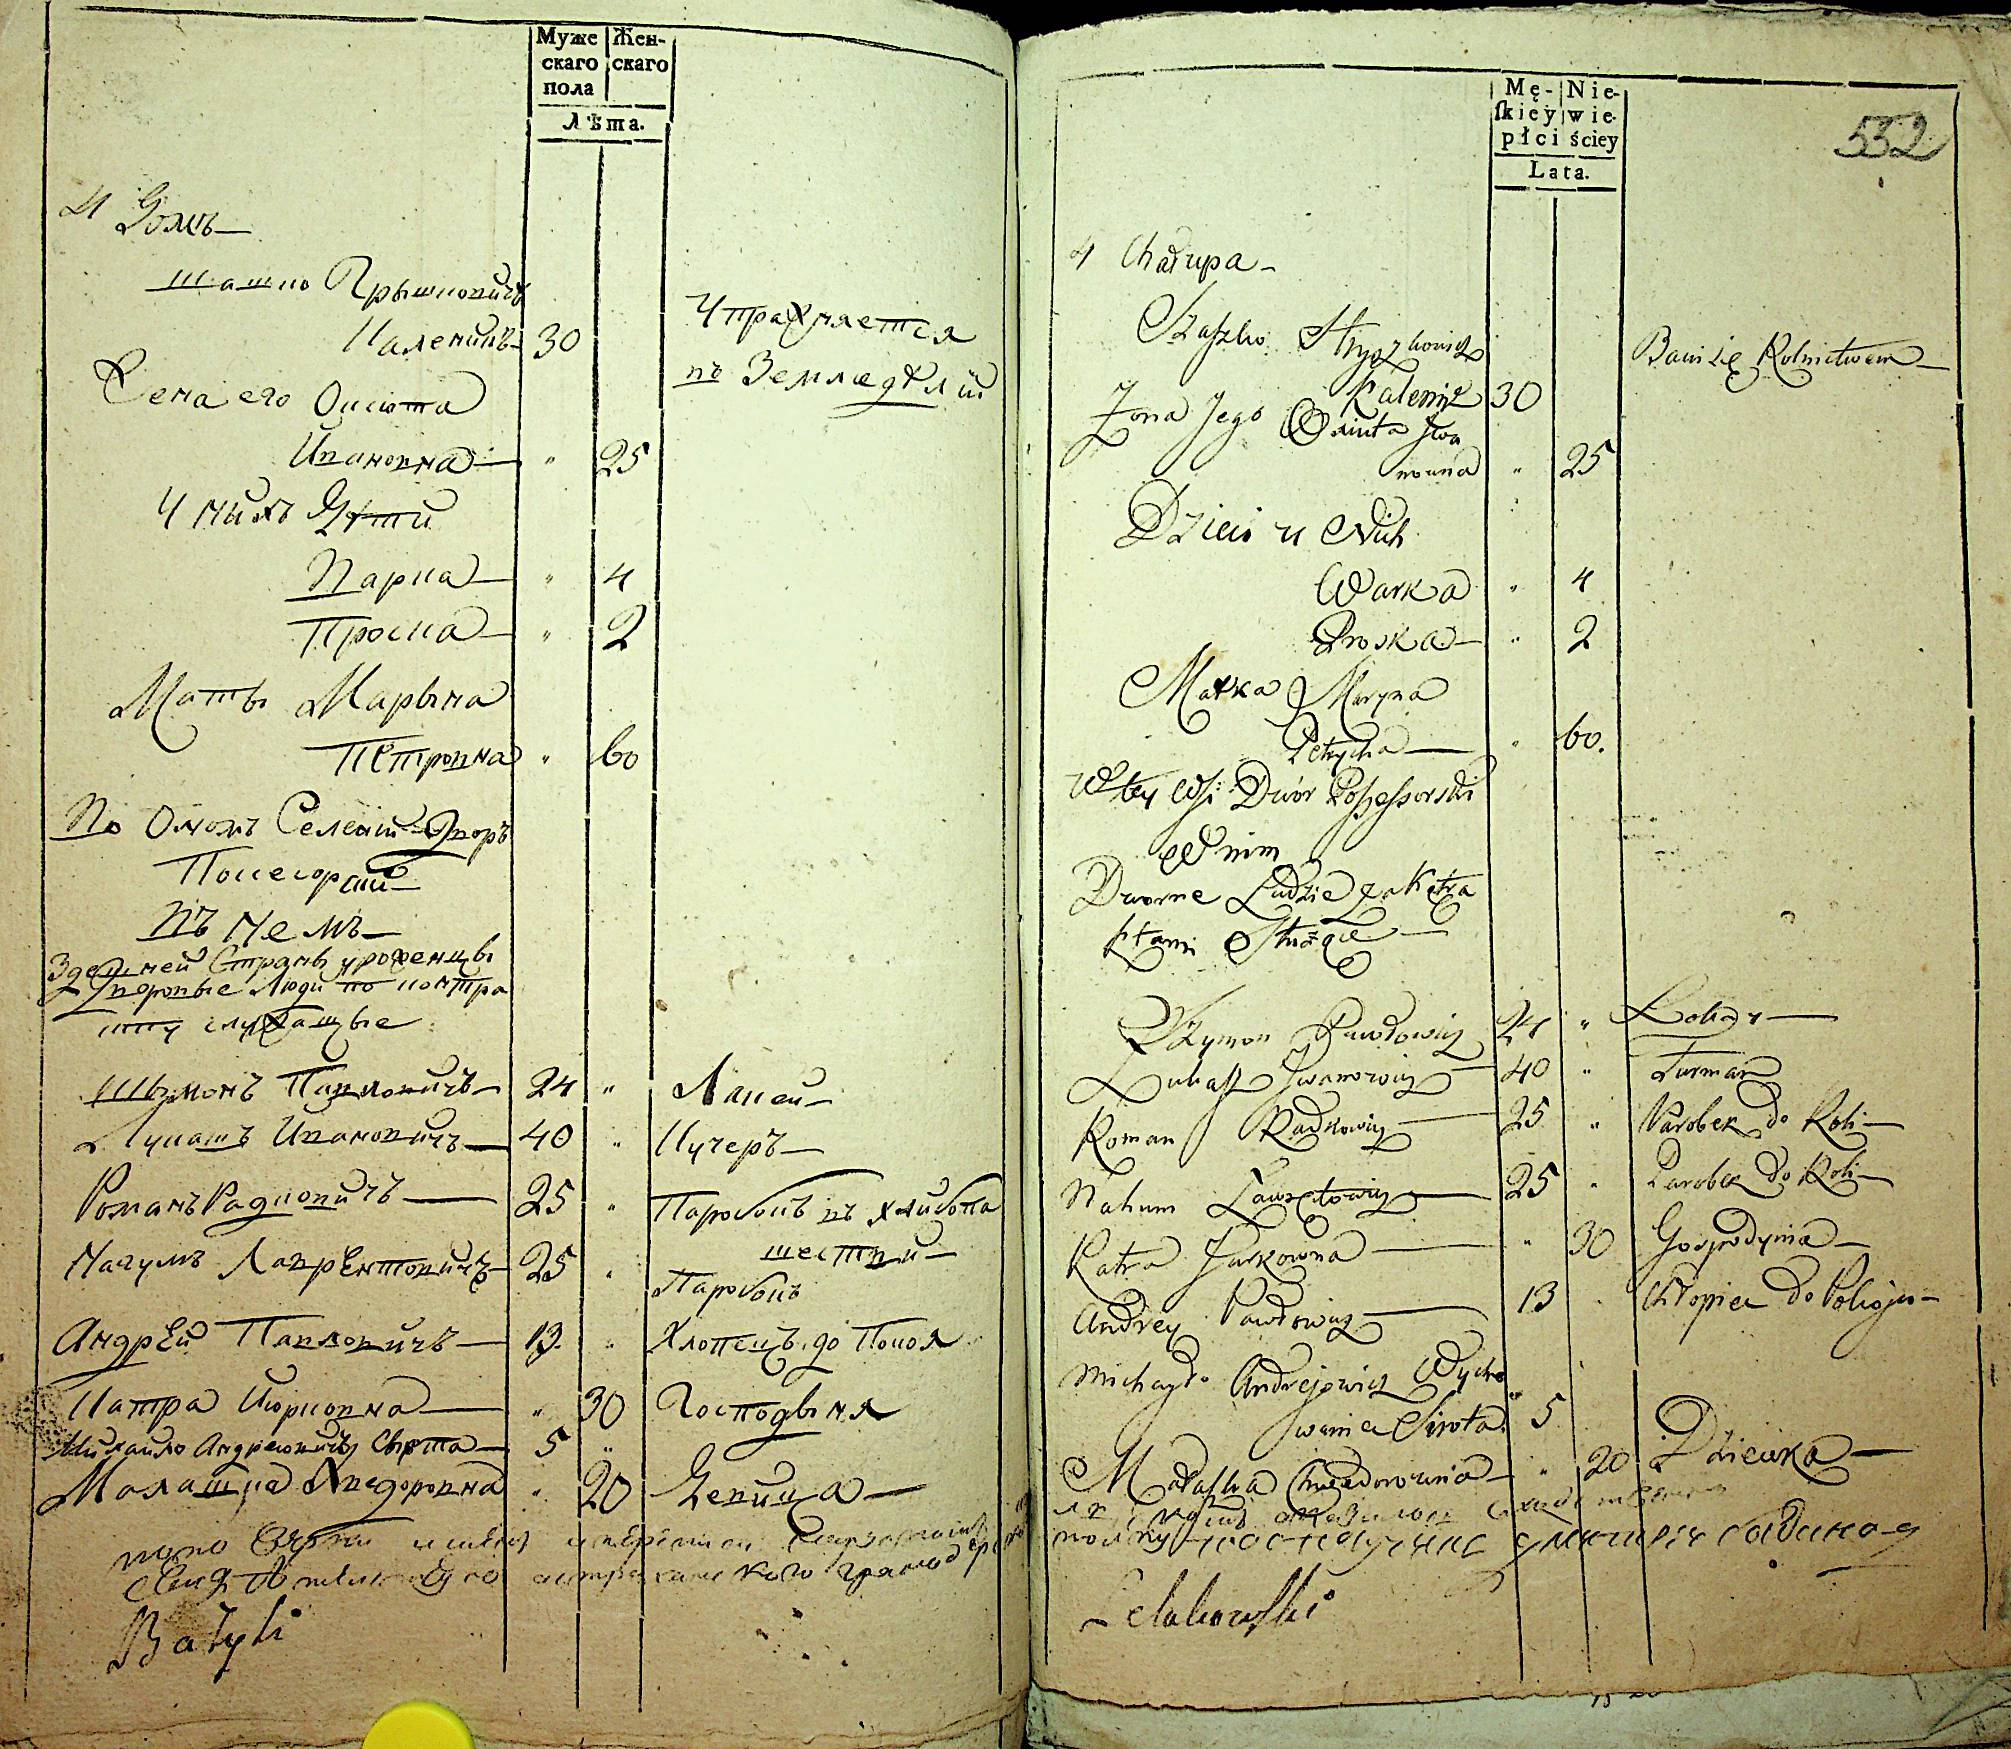 Муже Жен-
скаго скаго
пола
Лѣта.
4 Домъ
Сташко Грышковичъ
Каленикъ 30
Упражняется
въ Земледѣлїи
Жена его Оксюта
Ивановна " 25
У нихъ Дѣти
Варка " 4
Проска " 2
Мать Марына
Петровна " 60
ВоОномъ Селенїи Дворъ
Посесорскій
въ немъ
Здешней Страны уроженцы
Дворовые Люди по контра
кту служащые
Шымонъ Павловичъ 24 " Лакей
Лукашъ Ивановичъ 40 " Кучеръ
Романъ Радковичъ 25 " Паробокъ въ хлибопа
шестви
Нагумъ Лаврентовичъ 25 " Паробокъ
Андрей Павловичъ 13 " Хлопецъ до Покоя
Катра Юрковна " 30 Господыня
Михайло Андреювичъ Сырота 5 "
Малашка Хведоровна " 20 Девица
Batyki
Mę- Nie-
skiey wie-
płci ściey
Lata.
532
4 Chałupa
Staszko Hryszkowicz
Kalenik 30
Bawi się Rolnictwem
Żona Jego Oxiuta Iwa
nowna " 25
Dzieci u Nich
Warka " 4
Proska " 2
Matka Maryna
Petrycha " 60.
W tey Wsi Dwór Possessorski
W nim
Dworne Ludzie za Kątra
ktami Służące
Szymon Pawłowicz 24 " Lokay
Łukasz Iwanowicz 40 " Furman
Roman Radkowicz 25 " Parobek do Roli
Nahum Ławretowicz 25 " Parobek do Roli
Katra Jurkowna " 30 Gospodynia
Andrey Pawłowicz 13 " Chłopiec do Pokoju
Michayło Andrejowicz Wycho
waniec Sirota 5
Małaszka Chwedorowna " 20 Dziewka